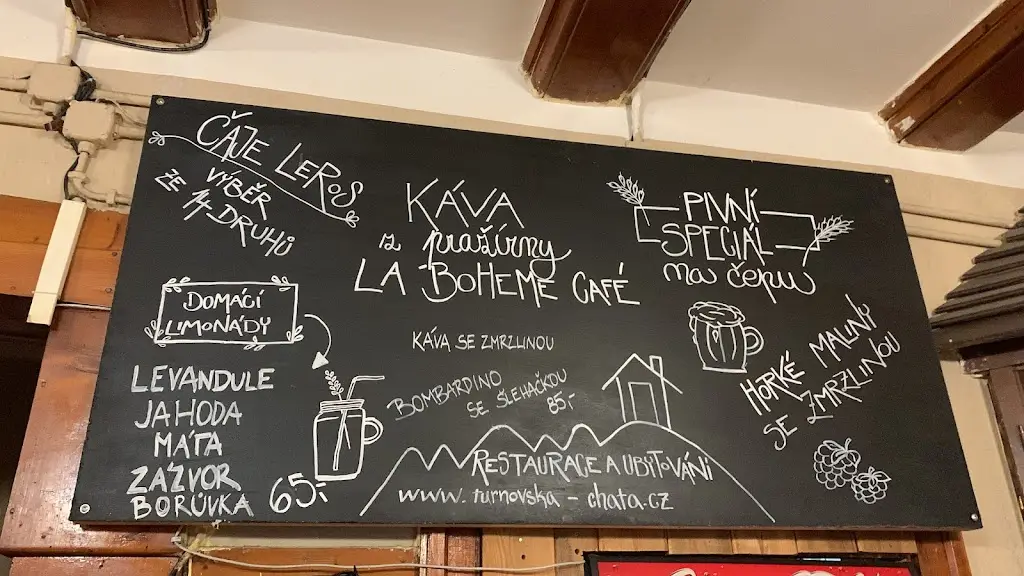 ČAJE LEROS
VÝBĚR
ZE 14-DRUHŮ
DOMÁCÍ
LIMONÁDY
LEVANDULE
JAHODA
MÁTA
ZÁZVOR
BORŮVKA
65,-
KÁVA
z pražírny
LA BOHEME CAFÉ
KÁVA SE ZMRZLINOU
BOMBARDINO
SE ŠLEHAČKOU
85,-
RESTAURACE A UBYTOVÁNÍ
www.turnovska-chata.cz
PIVNÍ
SPECIÁL
na čepu
HORKÉ MALINY
SE ZMRZLINOU